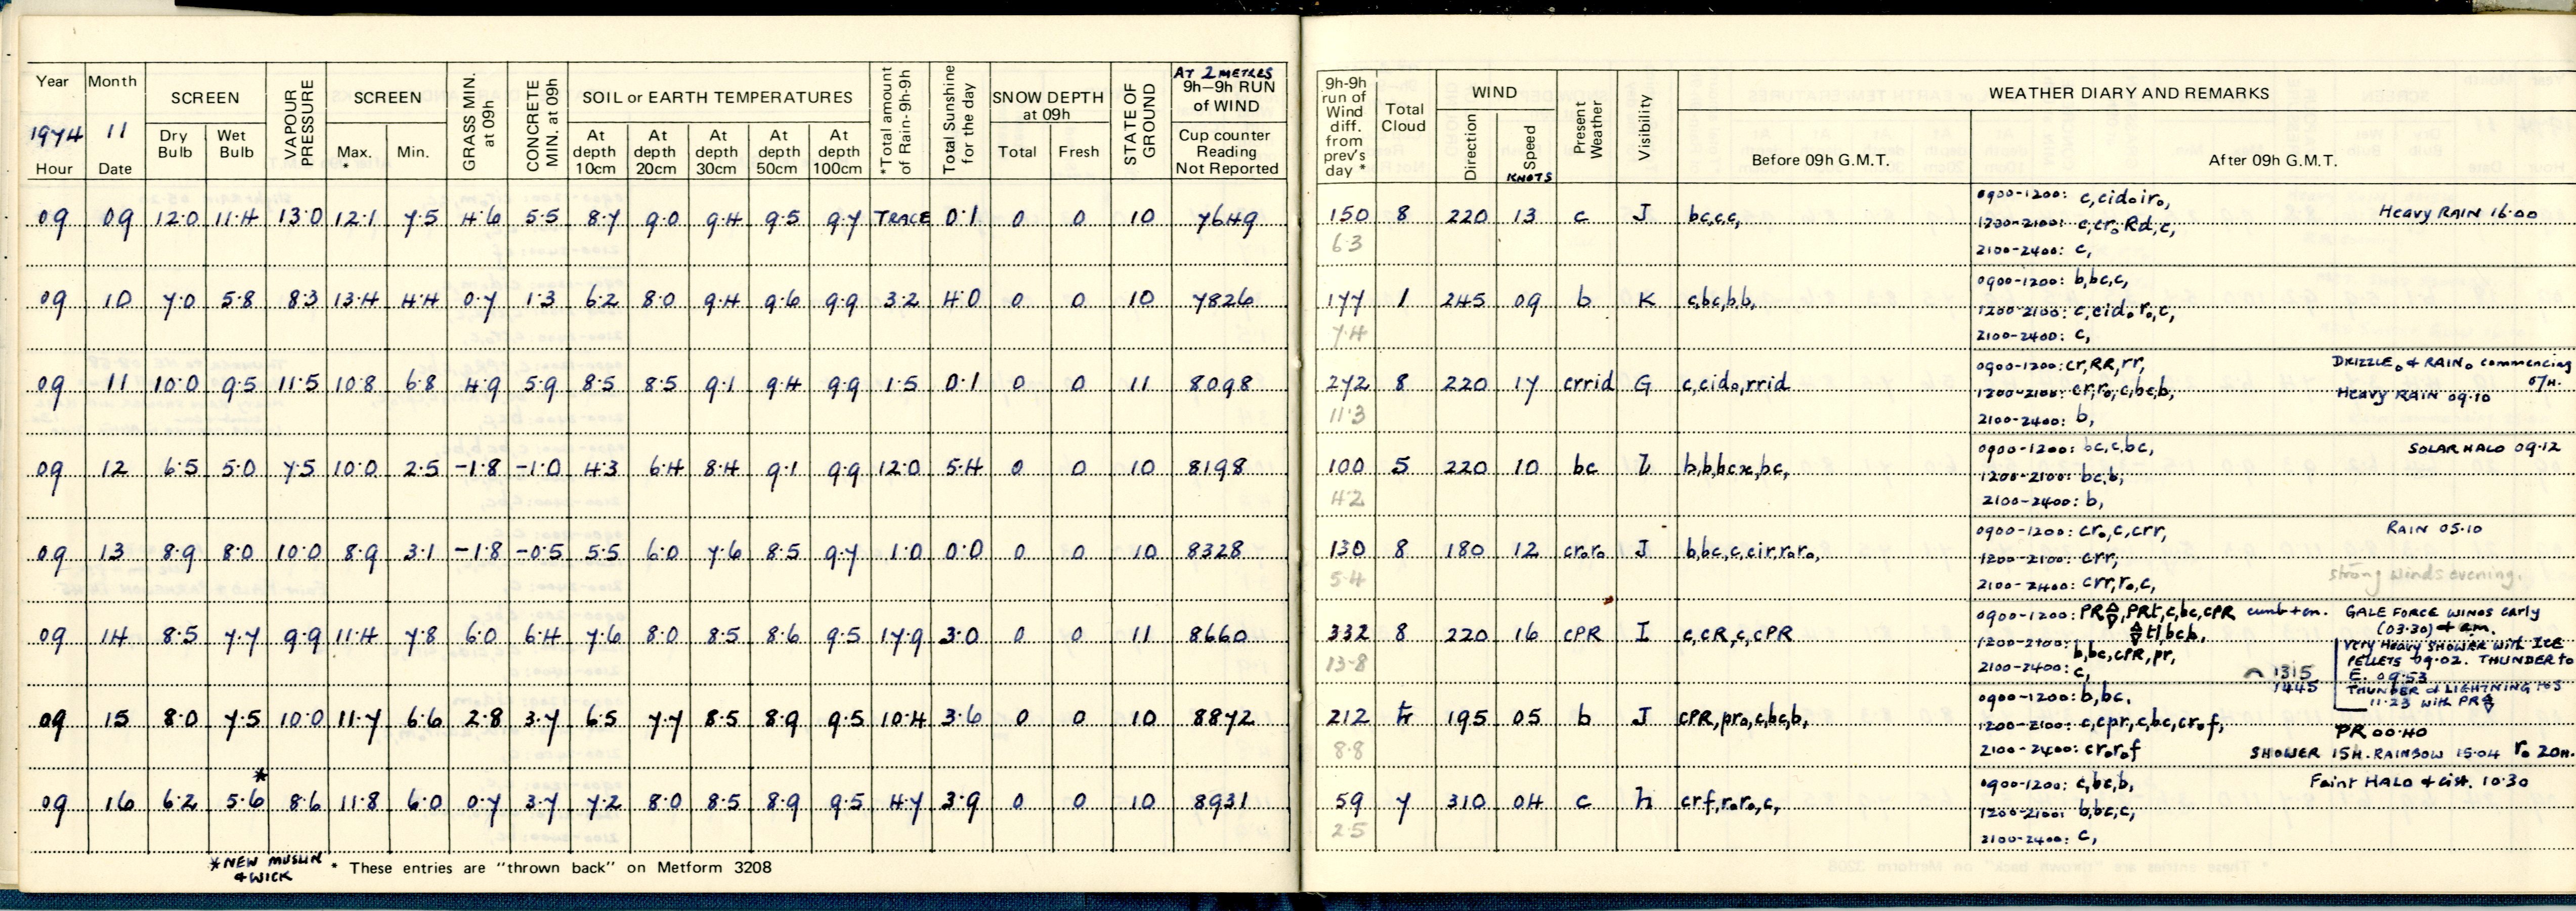 Year Month SCREEN VAPOUR PRESSURE SCREEN GRASS MIN. at 09h CONCRETE MIN. at 09h SOIL or EARTH TEMPERATURES *Total amount of Rain-9h-9h Total Sunshine for the day SNOW DEPTH at 09h STATE OF GROUND AT 2 METRES 9h-9h RUN of WIND
1974 11 Dry Bulb Wet Bulb Max. * Min. At depth 10cm At depth 20cm At depth 30cm At depth 50cm At depth 100cm Total Fresh Cup counter Reading Not Reported
Hour Date
09 09 12·0 11·4 13·0 12·1 7·5 4·6 5·5 8·7 9·0 9·4 9·5 9·7 TRACE 0·1 0 0 10 7649
09 10 7·0 5·8 8·3 13·4 4·4 0·7 1·3 6·2 8·0 9·4 9·6 9·9 3·2 4·0 0 0 10 7826
09 11 10·0 9·5 11·5 10·8 6·8 4·9 5·9 8·5 8·5 9·1 9·4 9·9 1·5 0·1 0 0 11 8098
09 12 6·5 5·0 7·5 10·0 2·5 -1·8 -1·0 4·3 6·4 8·4 9·1 9·9 12·0 5·4 0 0 10 8198
09 13 8·9 8·0 10·0 8·9 3·1 -1·8 -0·5 5·5 6·0 7·6 8·5 9·7 1·0 0·0 0 0 10 8328
09 14 8·5 7·7 9·9 11·4 7·8 6·0 6·4 7·6 8·0 8·5 8·6 9·5 17·9 3·0 0 0 11 8660
09 15 8·0 7·5 10·0 11·7 6·6 2·8 3·7 6·5 7·7 8·5 8·9 9·5 10·4 3·6 0 0 10 8872
*
09 16 6·2 5·6 8·6 11·8 6·0 0·7 3·7 7·2 8·0 8·5 8·9 9·5 4·7 3·9 0 0 10 8931
*NEW MUSLIN & WICK
* These entries are "thrown back" on Metform 3208
9h-9h run of Wind diff. from prev's day * Total Cloud WIND Present Weather Visibility WEATHER DIARY AND REMARKS
Direction Speed KNOTS Before 09h G.M.T. After 09h G.M.T.
150 8 220 13 c J bc,c,c, 0900-1200: c,cid₀ir₀,
6·3 1200-2100: c,cr₀Rd,c, Heavy RAIN 16·00
2100-2400: c,
177 1 245 09 b K c,bc,b,b, 0900-1200: b,bc,c,
7·4 1200-2100: c,cid₀r₀,c,
2100-2400: c,
272 8 220 17 crrid G c,cid₀,rrid 0900-1200: cr,RR,rr, DRIZZLE₀ & RAIN₀ commencing 07H.
11·3 1200-2100: cr,r₀,c,bc,b, Heavy RAIN 09·10
2100-2400: b,
100 5 220 10 bc b,b,bcx,bc, 0900-1200: bc,c,bc, SOLAR HALO 09·12
4·2 1200-2100: bc,b,
2100-2400: b,
130 8 180 12 cr₀r₀ J b,bc,c,cir,r₀r₀, 0900-1200: cr₀,c,crr, RAIN 05·10
5·4 1200-2100: crr,
2100-2400: crr,r₀,c, strong winds evening.
332 8 220 16 cPR I c,cR,c,cPR 0900-1200: PR,PRt,c,bc,cPR GALE FORCE WINDS early (03·30) & am.
13·8 1200-2100: b,bc,cPR,pr, tl,bc,b,
2100-2400: c, 1315 1445
Very Heavy SHOWER with ICE PELLETS 09·02. THUNDER to E. 09·53
THUNDER & LIGHTNING 11·23 with PR
212 tr 195 05 b J cPR,pr₀,c,bc,b, 0900-1200: b,bc,
8·8 1200-2100: c,cpr,c,bc,cr₀f, PR 00·40
2100-2400: cr₀r₀f SHOWER 15H. RAINBOW 15·04 r₀ 20H.
59 7 310 04 c h crf,r₀r₀,c, 0900-1200: c,bc,b, Faint HALO & cist. 10·30
2·5 1200-2100: b,bc,c,
2100-2400: c,